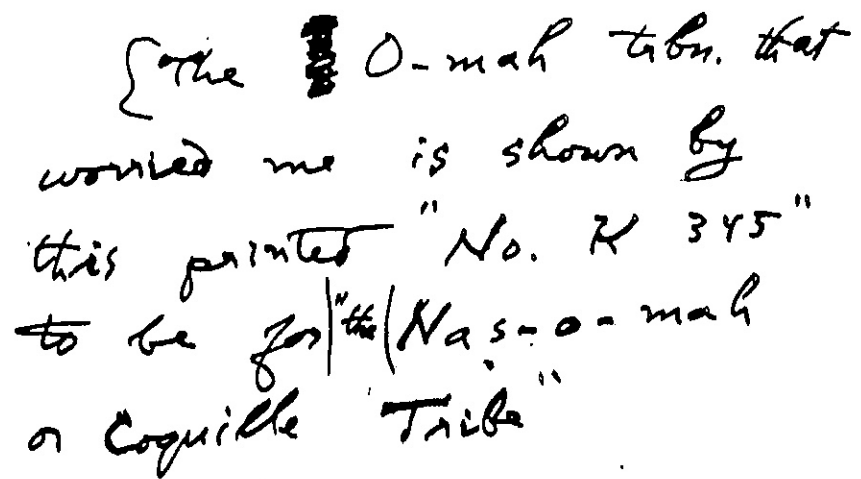 {The O-mah tribn. that
worried me is shown by
this printed "No. K 345"
to be for|"the(Nas-o-mah
or Coquille Tribe"